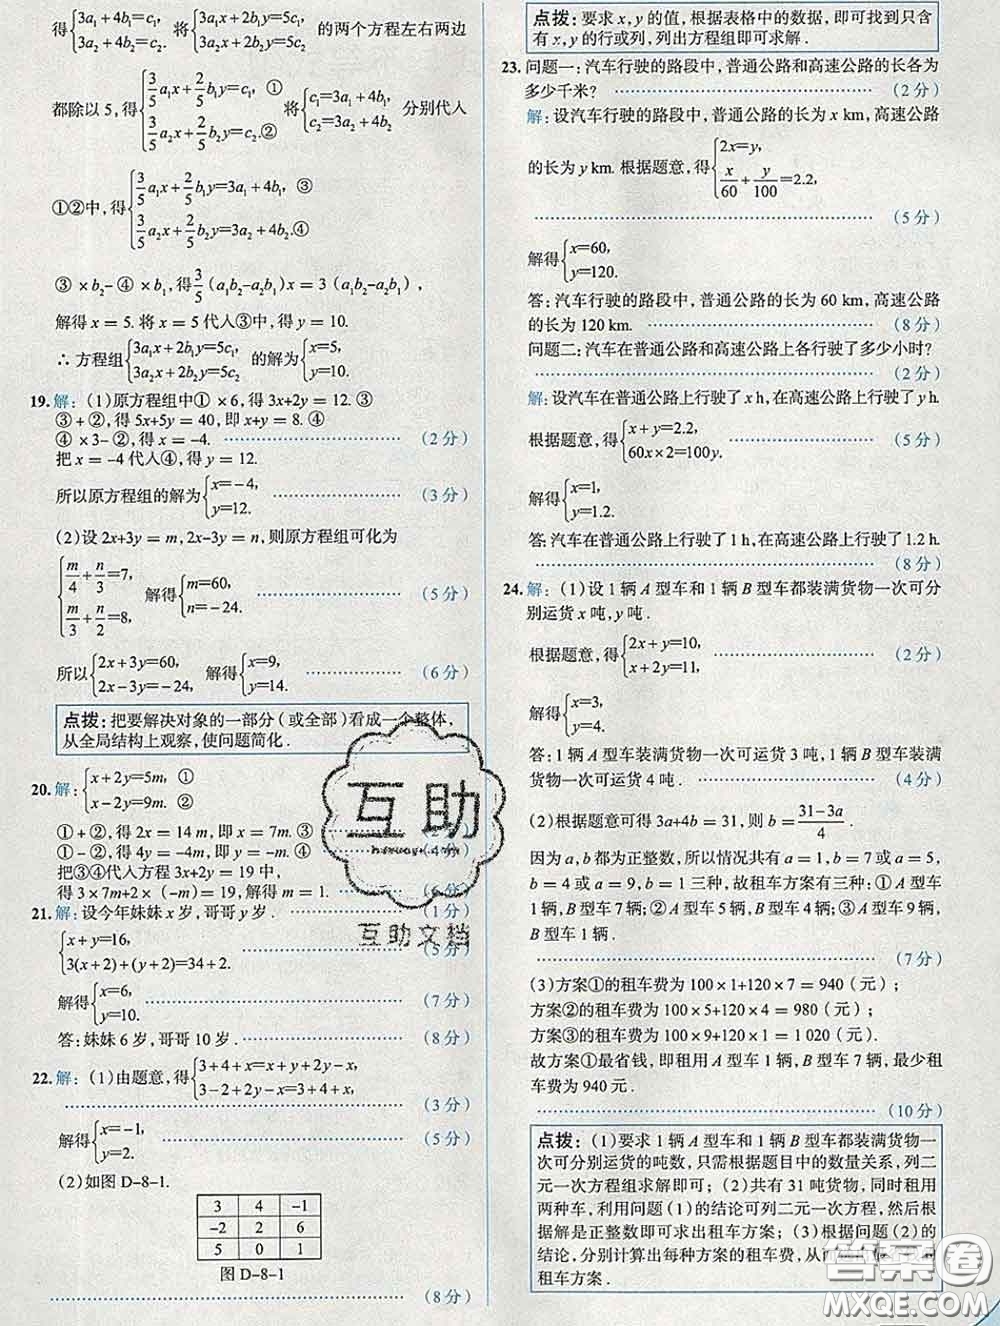 得{3a₁+4b₁=c₁, 3a₂+4b₂=c₂. 将{3a₁x+2b₁y=5c₁ 3a₂x+2b₂y=5c₂ 的两个方程左右两边
都除以 5, 得{3/5 a₁x+2/5 b₁y=c₁ ① 3/5 a₂x+2/5 b₂y=c₂. ② 将{c₁=3a₁+4b₁, c₂=3a₂+4b₂ 分别代入
①②中, 得{3/5 a₁x+2/5 b₁y=3a₁+4b₁, ③ 3/5 a₂x+2/5 b₂y=3a₂+4b₂. ④
③×b₂-④×b₁, 得3/5(a₁b₂-a₂b₁)x=3(a₁b₂-a₂b₁),
解得 x=5. 将 x=5代入③中, 得 y=10.
∴ 方程组{3a₁x+2b₁y=5c₁, 3a₂x+2b₂y=5c₂ 的解为{x=5, y=10.
19.解: (1)原方程组中①×6, 得 3x+2y=12. ③
③+②, 得 5x+5y=40, 即 x+y=8. ④
④×3-②, 得 x=-4. (2分)
把 x=-4代入④, 得 y=12.
所以原方程组的解为{x=-4, y=12. (3分)
(2)设 2x+3y=m, 2x-3y=n, 则原方程组可化为
{m/4+n/3=7, m/3+n/2=8, 解得{m=60, n=-24. (5分)
所以{2x+3y=60, 2x-3y=-24, 解得{x=9, y=14. (6分)
点拨: 把要解决对象的一部分(或全部)看成一个整体,
从全局结构上观察, 使问题简化.
20.解: {x+2y=5m, ① x-2y=9m. ②
①+②, 得 2x=14m, 即 x=7m. ③
①-②, 得 4y=-4m, 即 y=-m. ④
把③④代入方程 3x+2y=19 中,
得 3×7m+2×(-m)=19, 解得 m=1. (6分)
21.解: 设今年妹妹 x 岁, 哥哥 y 岁. (1分)
{x+y=16, 3(x+2)+(y+2)=34+2. (5分)
解得{x=6, y=10. (7分)
答: 妹妹 6 岁, 哥哥 10 岁. (8分)
22.解: (1)由题意, 得{3+4+x=x+y+2y-x, 3-2+2y-x=3+4+x,
(3分)
解得{x=-1, y=2. (5分)
(2)如图 D-8-1.
3 4 -1
-2 2 6
5 0 1
图 D-8-1
(8分)
点拨: 要求 x, y 的值, 根据表格中的数据, 即可找到只含
有 x, y 的行或列, 列出方程组即可求解.
23.问题一: 汽车行驶的路段中, 普通公路和高速公路的长各为
多少千米? (2分)
解: 设汽车行驶的路段中, 普通公路的长为 x km, 高速公路
的长为 y km. 根据题意, 得{2x=y, x/60+y/100=2.2,
(5分)
解得{x=60, y=120.
答: 汽车行驶的路段中, 普通公路的长为 60 km, 高速公路
的长为 120 km. (8分)
问题二: 汽车在普通公路和高速公路上各行驶了多少小时?
(2分)
解: 设汽车在普通公路上行驶了 x h, 在高速公路上行驶了 y h.
根据题意, 得{x+y=2.2, 60x×2=100y. (5分)
解得{x=1, y=1.2.
答: 汽车在普通公路上行驶了 1 h, 在高速公路上行驶了 1.2 h.
(8分)
24.解: (1)设 1 辆 A 型车和 1 辆 B 型车都装满货物一次可分
别运货 x 吨, y 吨.
根据题意, 得{2x+y=10, x+2y=11, (2分)
解得{x=3, y=4.
答: 1 辆 A 型车装满货物一次可运货 3 吨, 1 辆 B 型车装满
货物一次可运货 4 吨. (4分)
(2)根据题意可得 3a+4b=31, 则 b=(31-3a)/4.
因为 a, b 都为正整数, 所以情况共有 a=1, b=7 或 a=5,
b=4 或 a=9, b=1 三种, 故租车方案有三种: ①A 型车
1辆, B 型车 7辆; ②A 型车 5辆, B 型车 4辆; ③A 型车 9辆,
B 型车 1 辆.
(7分)
(3)方案①的租车费为 100×1+120×7=940(元);
方案②的租车费为 100×5+120×4=980(元);
方案③的租车费为 100×9+120×1=1 020(元).
故方案①最省钱, 即租用 A 型车 1辆, B 型车 7辆, 最少租
车费为 940 元.
(10分)
点拨: (1)要求 1 辆 A 型车和 1 辆 B 型车都装满货物一
次可分别运货的吨数, 只需根据题目中的数量关系, 列二
元一次方程组求解即可; (2)共有 31 吨货物, 同时租用
两种车, 利用问题(1)的结论可列二元一次方程, 然后根
据解是正整数即可求出租车方案; (3)根据问题(2)的
结论, 分别计算出每种方案的租车费, 从
租车方案.
互助
互助文档
答案圈
MXQE.COM